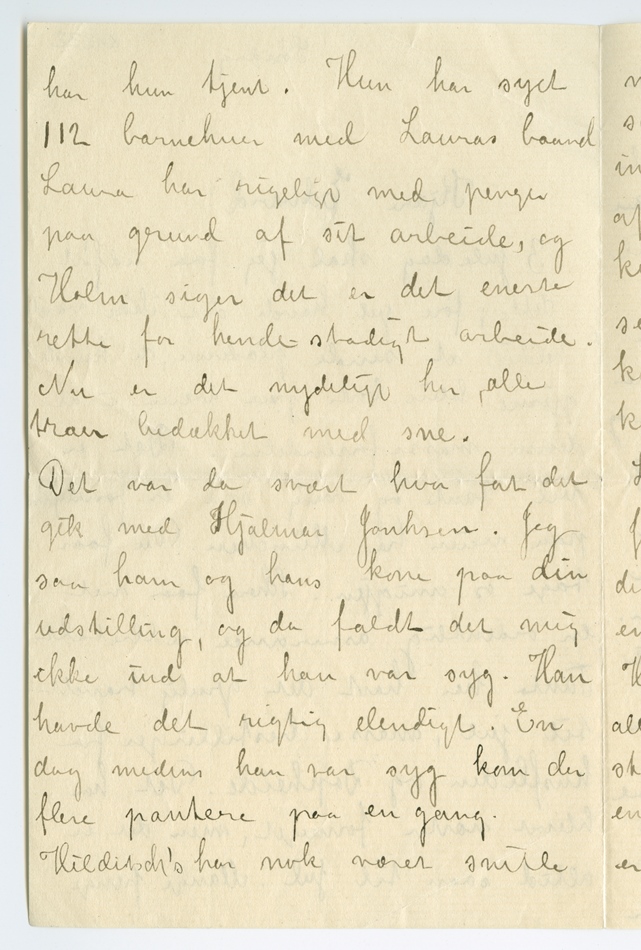 har hun tjent. Hun har syet
112 barnehuer med Lauras baand
Laura har rigeligt med penger
paa grund af sit arbeide, og
Holm siger det er det eneste
rette for hende stadigt arbeide.
Nu er det nydeligt her, alle
træer bedækket med sne.
Det var da svært hvor fort det
gik med Hjalmar Johnsen. Jeg
saa ham og hans kone paa din
udstilling, og da faldt det mig
ikke ind at han var syg. Han
havde det rigtig elendigt. En
dag medens han var syg kom der
flere pantere paa en gang.
Hilditsch's har nok været snille